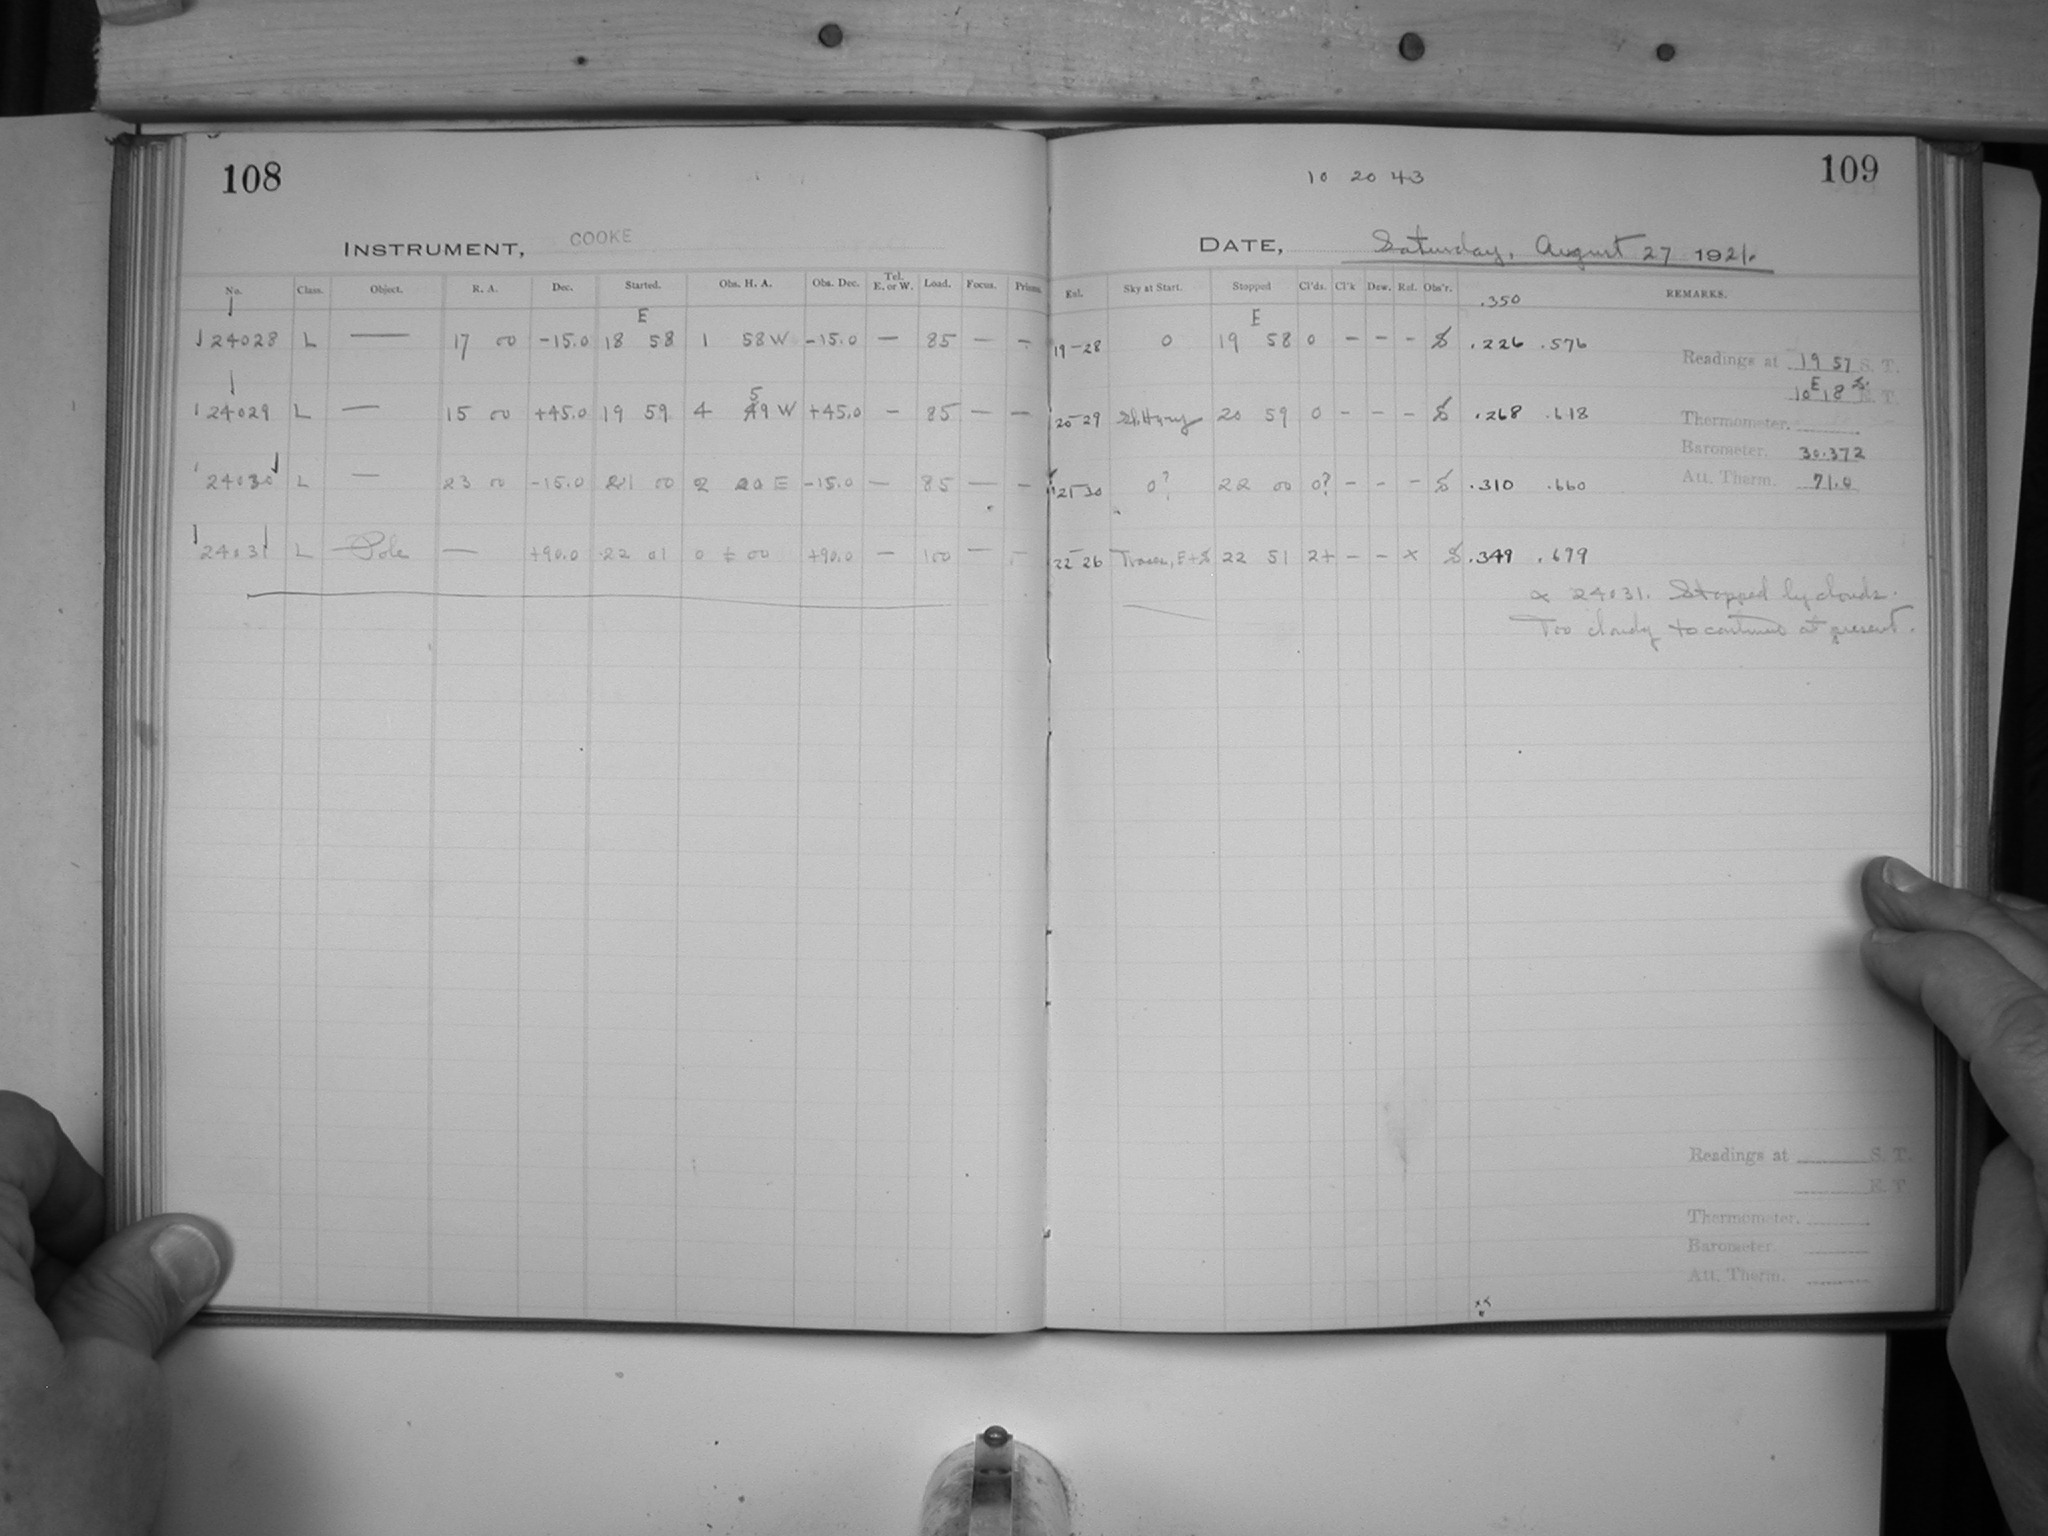 108
INSTRUMENT, COOKE
No. Class. Object. R. A. Dec. Started. Obs. H. A. Obs. Dec. Tel. E. or W. Load. Focus. Prisms.
E
24028 L — 17 00 -15.0 18 58 1 58 W -15.0 — 85 — —
5
24029 L — 15 00 +45.0 19 59 4 49 W +45.0 — 85 — —
24030 L — 23 00 -15.0 21 00 2 20 E -15.0 — 85 — —
24031 L Pole — +90.0 22 01 0 ± 00 +90.0 — 100 — —
10 20 43
109
DATE, Saturday, August 27 1921.
Exl. Sky at Start. Stopped Cl'ds. Cl'k Dew. Rot. Obs'r. .350 REMARKS.
E
19-28 0 19 58 0 - - - S .226 .576
Readings at 19 57 S. T.
10 E 18 E. T.
20-29 Sl. Hazy 20 59 0 - - - S .268 .618
Thermometer.
Barometer. 30.372
21-30 0? 22 00 0? - - - S .310 .660
Att. Therm. 71.0
22-26 Traces, E+S 22 51 2+ - - x S .349 .679
x 24031. Stopped by clouds.
Too cloudy to continue at present.
Readings at S. T.
E. T.
Thermometer.
Barometer.
Att. Therm.